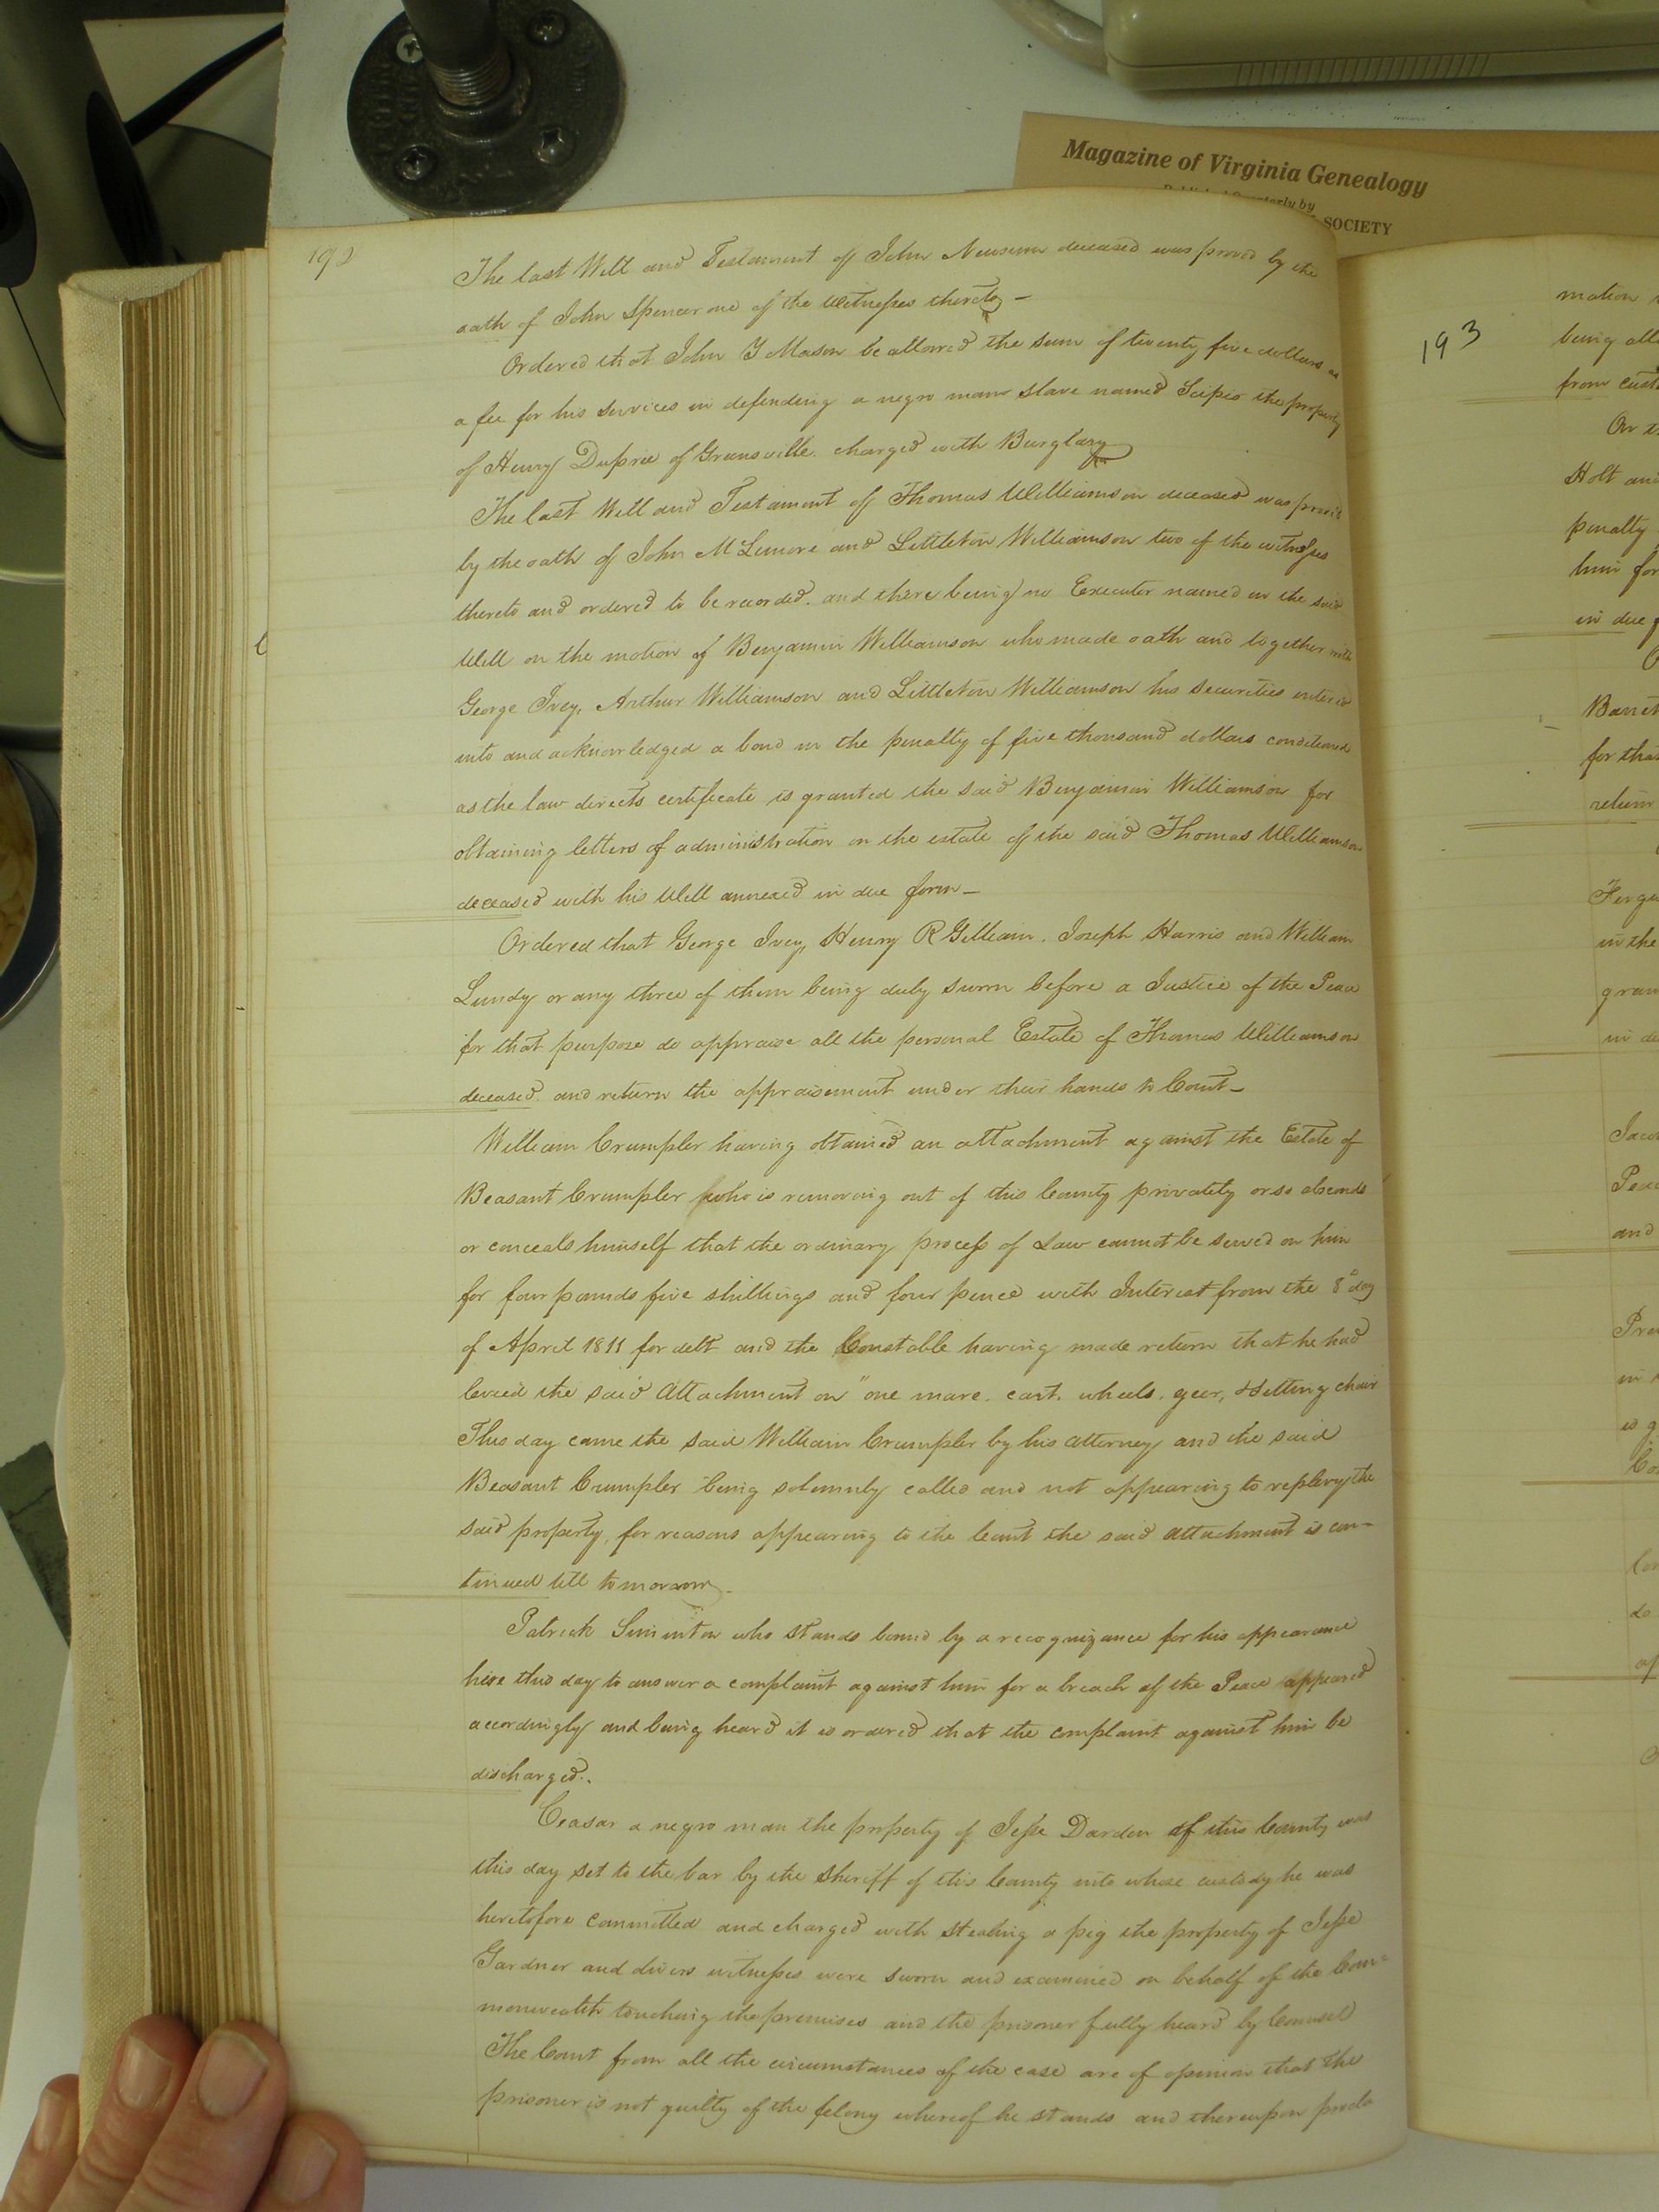 Magazine of Virginia Genealogy
Published Quarterly by
SOCIETY
192
The last Will and Testament of John Newsum deceased was proved by the
oath of John Spencer one of the Witnesses thereto —
Ordered that John Y Mason be allowed the sum of twenty five dollars as
a fee for his services in defending a negro man slave named Scipio the property
of Henry Dupree of Greensville charged with Burglary
The last Will and Testament of Thomas Williamson deceased was proved
by the oath of John McLemore and Littleton Williamson two of the witnesses
thereto and ordered to be recorded. and there being no Executor named in the said
Will on the motion of Benjamin Williamson who made oath and together with
George Ivey, Arthur Williamson and Littleton Williamson his securities entered
into and acknowledged a bond in the penalty of five thousand dollars conditioned
as the law directs certificate is granted the said Benjamin Williamson for
obtaining letters of administration on the estate of the said Thomas Williamson
deceased with his Will annexed in due form —
Ordered that George Ivey, Henry R Gilliam, Joseph Harris and William
Lundy or any three of them being duly sworn before a Justice of the Peace
for that purpose do appraise all the personal Estate of Thomas Williamson
deceased. and return the appraisement under their hands to Court —
William Crumpler having obtained an attachment against the Estate of
Beasant Crumpler who is removing out of this County privately or so absconds
or conceals himself that the ordinary process of Law cannot be served on him
for four pounds five shillings and four pence with Interest from the 8th day
of April 1811 for debt and the Constable having made return that he had
levied the said Attachment on "one mare. cart. wheels. geer, & Setting chair
This day came the said William Crumpler by his Attorney and the said
Beasant Crumpler being solemnly called and not appearing to replevy the
said property, for reasons appearing to the Court the said attachment is con-
tinued till tomorrow.
Patrick Siminton who stands bound by a recognizance for his appearance
here this day to answer a complaint against him for a breach of the Peace appeared
accordingly and being heard it is ordered that the complaint against him be
discharged.
Ceasar a negro man the property of Jesse Darden of this County was
this day set to the bar by the Sheriff of this County into whose custody he was
heretofore committed and charged with stealing a pig the property of Jesse
Gardner and divers witnesses were sworn and examined on behalf of the Com=
monwealth touching the premises and the prisoner fully heard by Counsel
The Court from all the circumstances of the case are of opinion that the
prisoner is not guilty of the felony whereof he stands and thereupon procla
193
motion
being all
from cust
Holt and
penalty
him for
in due
for that
return
in the
gran
and